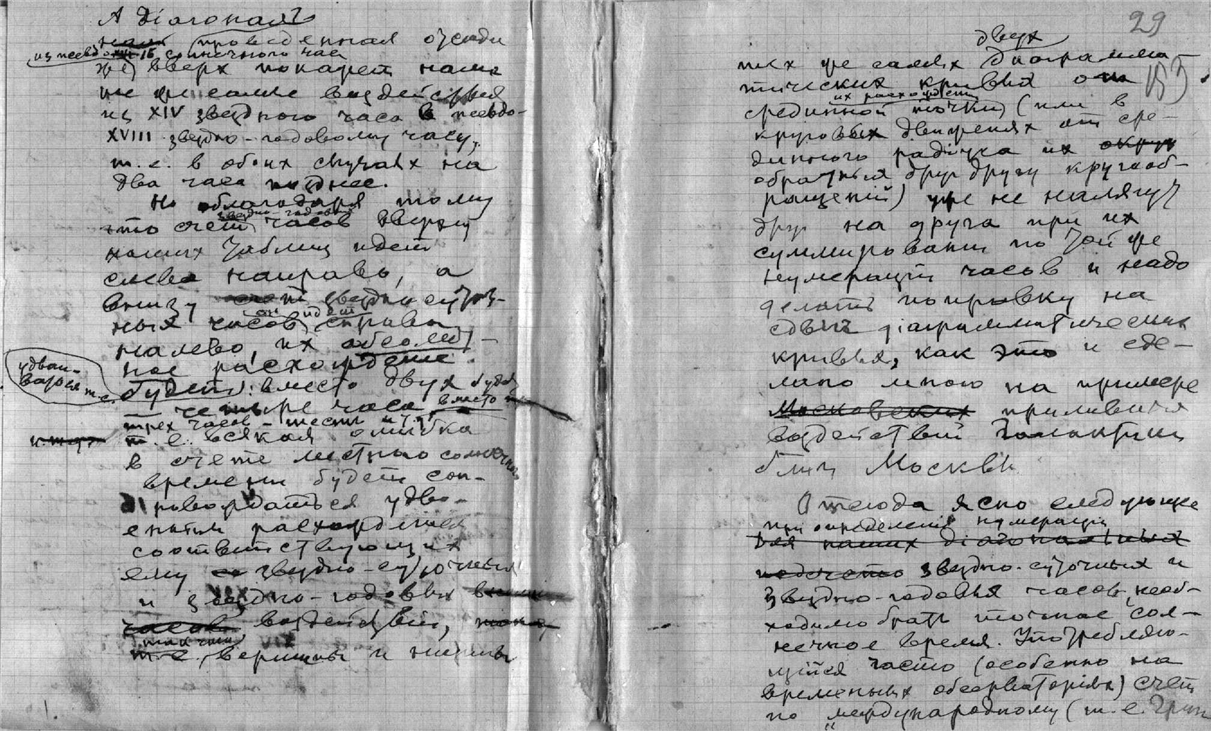 А діагональ
проведенная отсюда
из псевдо 16 солнечного час
же вверх покажет нам
те же самые воздействия
из XIV звездного часа в псевдо-
XVIII звездно-годовому часу,
т.е. в обоих случаях на
два часа позднее.
Но благодаря тому
звездно-годовых
что счет часов вверху
наших таблиц идет
слева направо, а
внизу звездно суточ-
он идет
ных часов справа
налево, их абсолют-
ное расхождение
удваи-
ваться
будет: вместо двух будет
четыре часа, вместо
трех часов – шесть и т.д.
т.е. всякая ошибка
в счете местного солнечнаго
времени будет соп-
ровождаться удво-
енным расхождением
соответствующих
ему звездно-суточных
и звездно-годовых
часов воздействий,
так что
т.е. вершины и низины
29
153
двух
тех же самых диаграмма-
тических кривых от
их расхождения
срединной точки (или в
круговых движениях от сре-
динного радіуса их
обратных друг другу кругооб-
ращений) уже не налягут
друг на друга при их
суммировании по той же
нумераціи часов и надо
делать поправку на
сдвиг діаграмматических
кривых, как это и сде-
лано мною на примере
Московских приливных
воздействий Галактики
близ Москвы
Отсюда ясно следующее
при определении нумерации
для наших діагональных
подсчетов звездно-суточных и
звездно-годовых часов необ-
ходимо брать точное сол-
нечное время. Употребляю-
щийся часто (особенно на
временных обсерваторіях) счет
по „международному (т.е. Грин